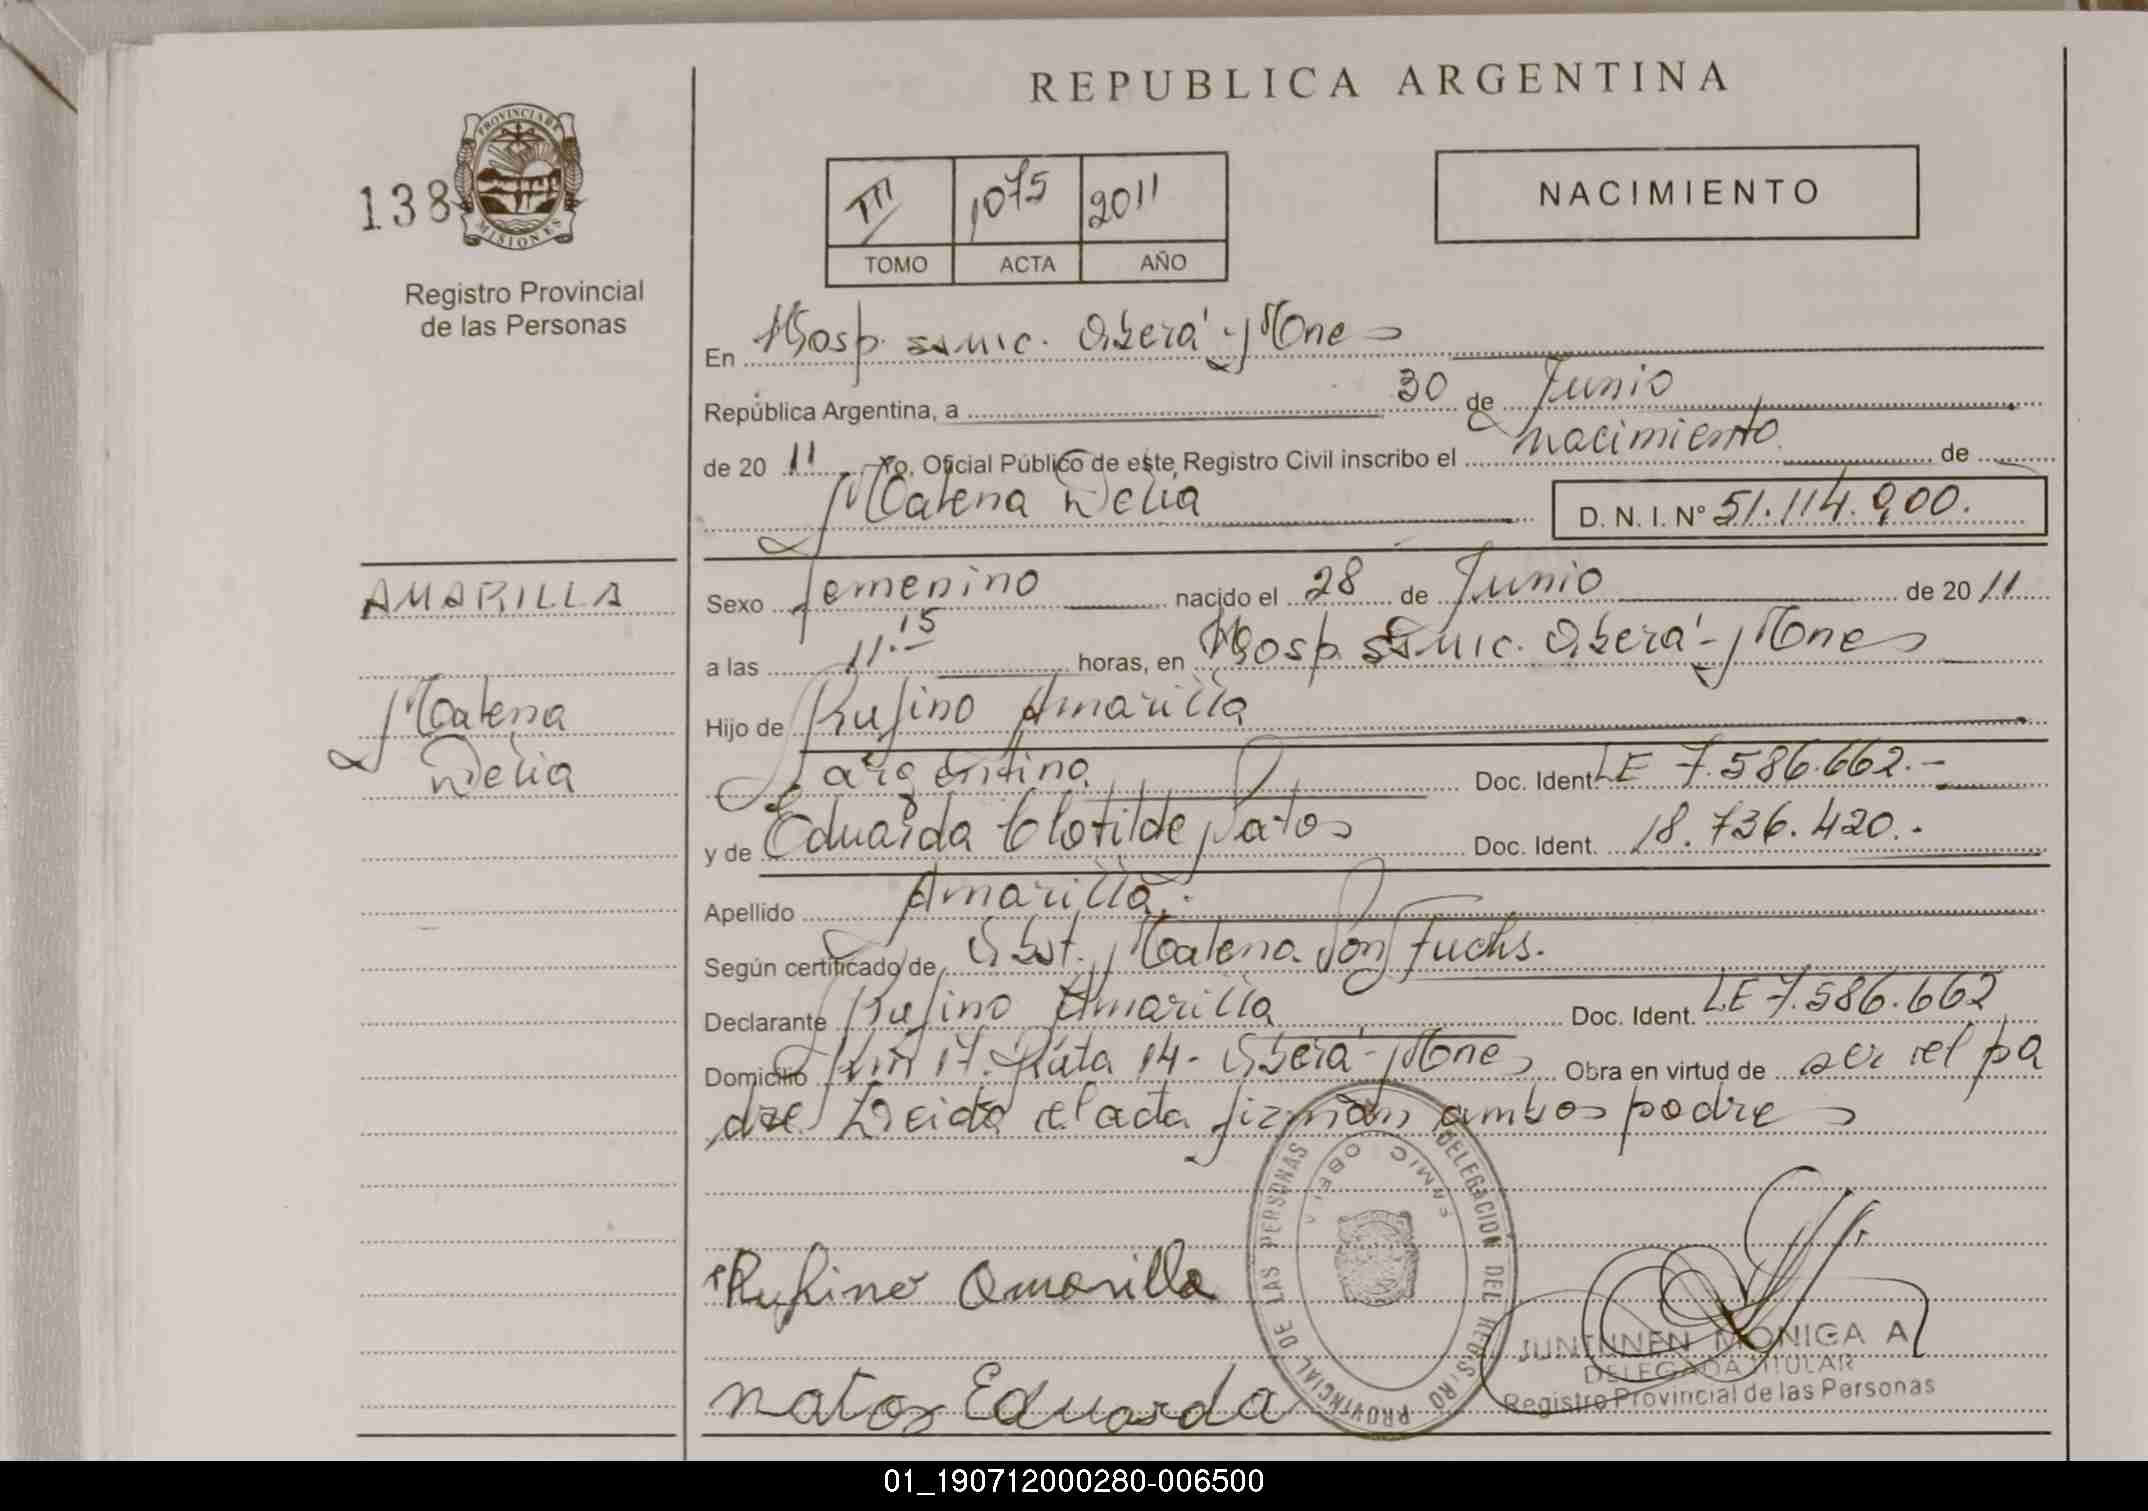 REPUBLICA ARGENTINA
PROVINCIA DE
MISIONES
138
Registro Provincial
de las Personas
III 1075 2011
TOMO ACTA AÑO
NACIMIENTO
En Hosp. SSMIC. Oberá - Mnes
República Argentina, a 30 de Junio
de 20 11 Yo, Oficial Público de este Registro Civil inscribo el nacimiento de
Malena Delia
D. N. I. Nº 51.114.900.
AMARILLA
Malena
Delia
Sexo femenino nacido el 28 de Junio de 20 11
a las 11.15 horas, en Hosp. SSMIC. Oberá - Mnes
Hijo de Rufino Amarilla
argentino Doc. Ident. LE 7.586.662.-
y de Eduarda Clotilde Matos Doc. Ident. 18.736.420.-
Apellido Amarilla.-
Según certificado de Obst. Malena Von Fuchs.
Declarante Rufino Amarilla Doc. Ident. LE 7.586.662
Domicilio Km 17. Ruta 14 - Oberá - Mnes Obra en virtud de ser el pa
dre. Leida el acta firman ambos padres
Rufino Amarilla
Matos Eduarda
DELEGACION DEL REGISTRO PROVINCIAL DE LAS PERSONAS
JUNTUNEN MONICA A
DELEGADA TITULAR
Registro Provincial de las Personas
01_190712000280-006500